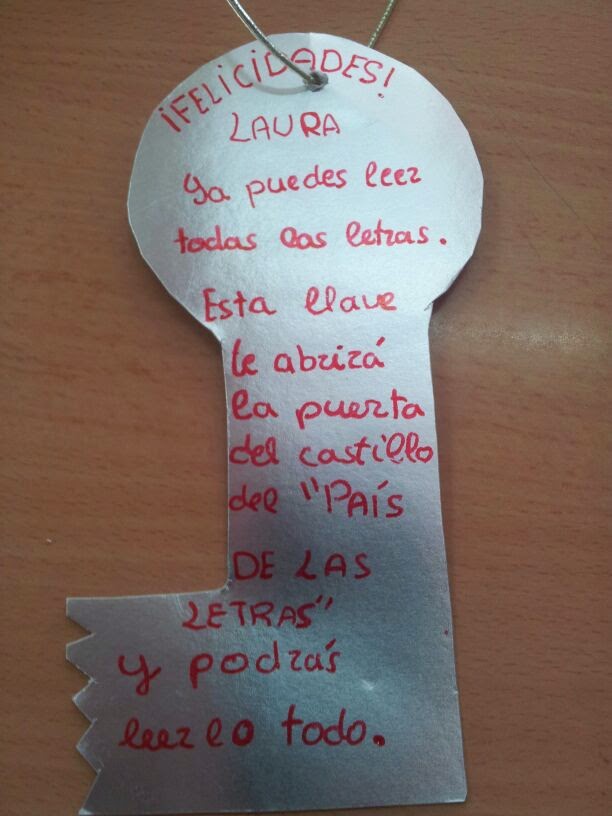 ¡FELICIDADES!
LAURA
Ya puedes leer
todas las letras.
Esta llave
le abrirá
la puerta
del castillo
del "PAÍS
DE LAS
LETRAS"
y podrás
leerlo todo.